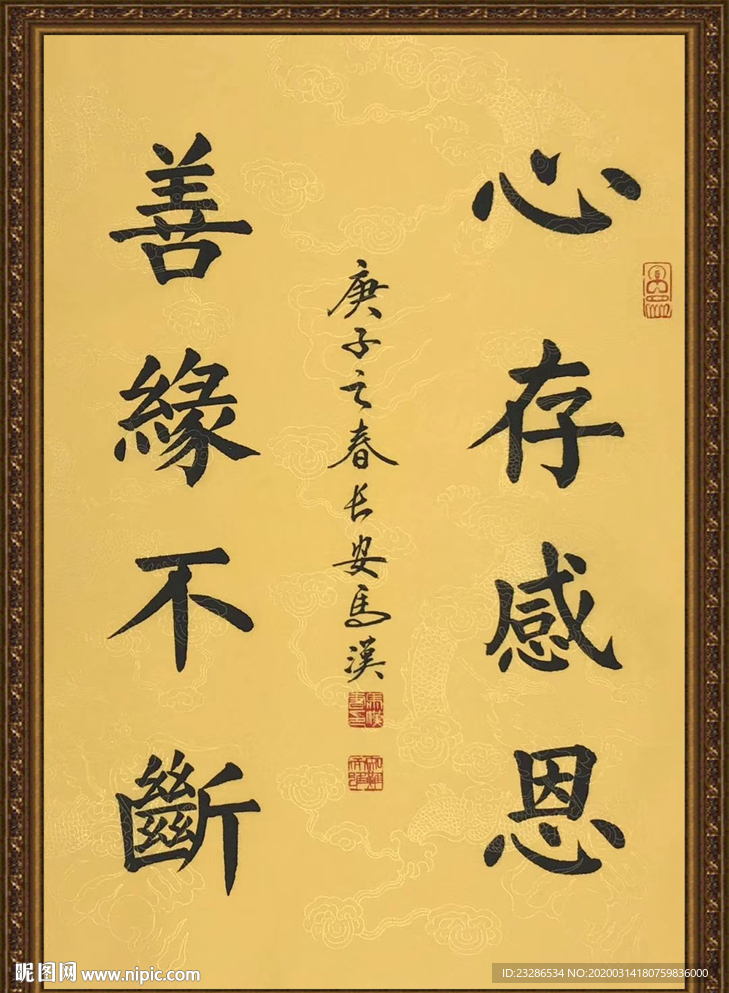 心存感恩
善緣不斷
庚子之春长安馬漢
昵图网 www.nipic.com
ID:23286534 NO:20200314180759836000